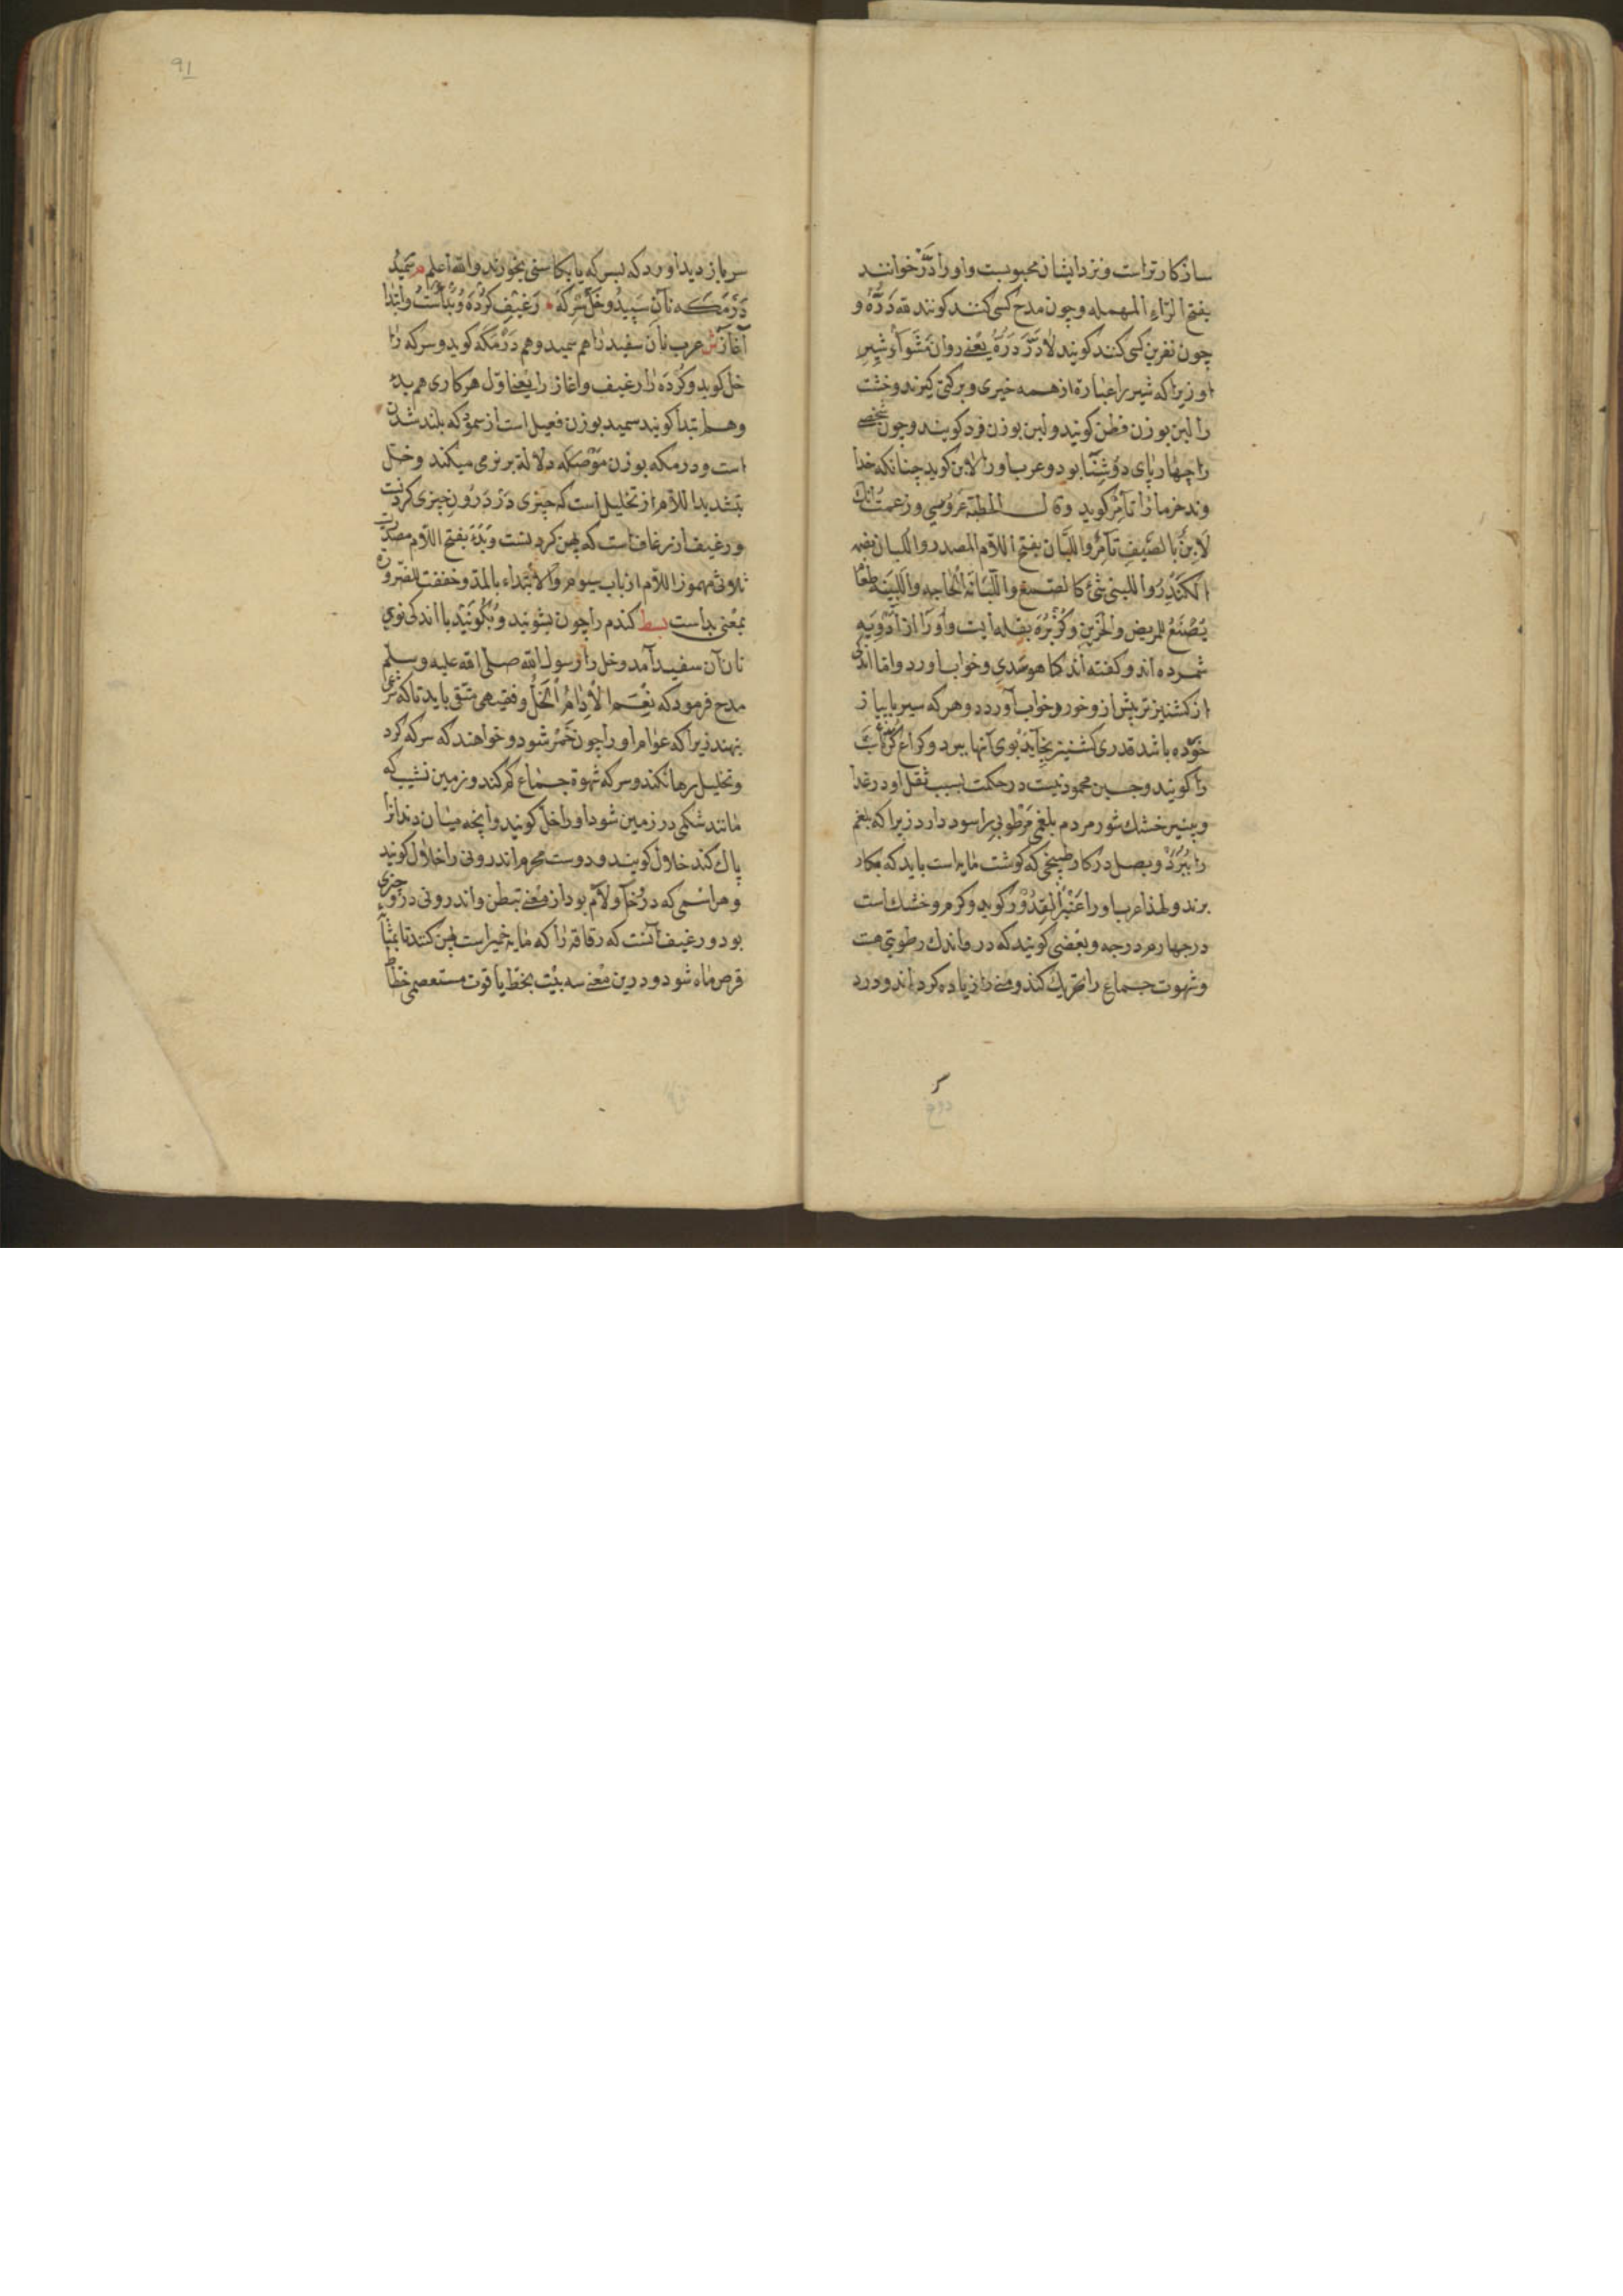 سازکارتر است و نزد ایشان محبوبست و او را دَرّ خوانند
بفتح الرّاء المهمله و چون مدح کسی کنند کویند لله دَرُّهُ و
چون نفرین کسی کنند کویند لا دَرَّ دَرُّهُ یعنی روان مَشَواد شیر
او زیرا که شیر را عبارة از همه خیری و برکتی کیرند و خشت
را لبن بوزن فطن کویند و لبن بوزن فرد کویند و چون شخصی
را چهارپای دوشنا بود و عرب او را لابن کوید چنانکه خدا
وند خرما را تامر کوید و قال الحطیئة غروسی و زعمت انک
لابِنٌ بالصَّیفِ تامِرٌ و اللَّبان بفتح اللام المصدر و اللُبان بضم
الکُندُر و اللبنی شئ کالصمغ و اللُّبانة الحاجه و اللَبینَة طعام
یُصْنَعُ للمریض و الحَزین و کُزْبُرَة بقله ایست و او را از اَدْوِیَه
شمرده اند و کفته اند کاهو سَدی و خواب اورد و اما اندکی
از کشنیز تر پیش از خور و خواب آورد و هر که سیر یا پیاز
خَوْرده باشد قدری کشنیز بخاید بوی آنها ببرد و کراع
را کویند و جبین محمود نیست در حکمت بسبب ثقل او در غذا
و پنیر خشک شور مردم بلغمی مَرْطوبی را سود دارد زیرا که بلغم
را بِبُرَد و بصل در کار طبیخی که کوشت مایه است باید که بکار
برند و لهذا عرب او را عَنْبَرُ القِدُوْر کوید و کرم و خشک است
در چهارم درجه و بعضی کویند که در و اندک رطوبتی هست
و شهوت جماع را تحریک کند و منی را زیاده کرداند و درد
سر باز دید اورد که بسرکه یا بکاسنی بخورند و الله اعلم سَمِیْد
دَرْمَکَه نانِ سَپیدْ و خَلّ سِرْکَه رَغِیْف کُرْدَه وَ بَدْاَسْت و ابتدا
آغاز ش عرب نان سفید را هم سمید و هم دَرْمَکَه کوید و سرکه را
خل کوید و کُرْدَه را رغیف و اغاز را یعنی اوّل هر کاری هم بدء
و هم ابتدا کویند سمید بوزن فعیل است از سموّ که بلند شدن
است و درمکه بوزن دلالة بر نرمی میکند و خلّ
بتشدید اللام از تخلیل است که چیزی دَرْ دَرُونِ چیزی کردنست
و رغیف از رغاف است که پهن کردنست و بَدَءَ بفتح اللام مصدرت
ثلاثی مهموز اللام از باب سیوم و الابتداء بالمدّ و خففت للضرورة
بمعنی بداست بسط کندم را چون بشویند و بکوبند با اندکی نوی
نان آن سفید آمد و خل را رسول الله صلی الله علیه و سلم
مدح فرمود که نِعْمَ الاِدامُ الْخَلُّ و فقیهی متقی باید تا که شرعی
بنهند زیرا که عوام او را چون خَمْر شود و خواهند که سرکه کرد
و تخلیل رها نکند و سرکه شهوة جماع کم کند و زمین نشیب که
مانند شکمی در زمین شود او را خلّ کویند و آنچه میان دندانرا
پاک کند خلال کویند و دوست محرم اندرونی را خلال کویند
و هر اسمی که در و خا و لام بود از معنی تبطن و اندرونی در و چیزی
بود و رغیف آنست که رقاقه را که مایه خمیر است پهن کنند تا بمثابه
قرص ماه شود و درین معنی سه بیت بخط یاقوت مستعصمی خطاط